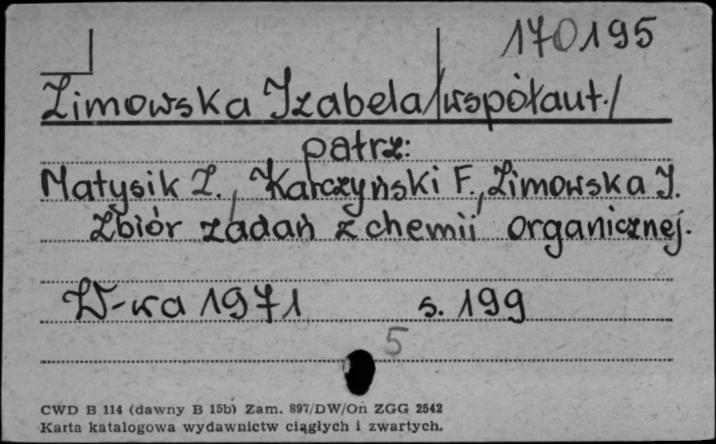 170195
Zimowska Izabela /współaut./
patrz:
Matysik Z., Karczyński F., Zimowska I.
Zbiór zadań z chemii organicznej.
W-wa 1971 s. 199
5
CWD B 114 (dawny B 15b) Zam. 897/DW/On ZGG 2542
Karta katalogowa wydawnictw ciągłych i zwartych.